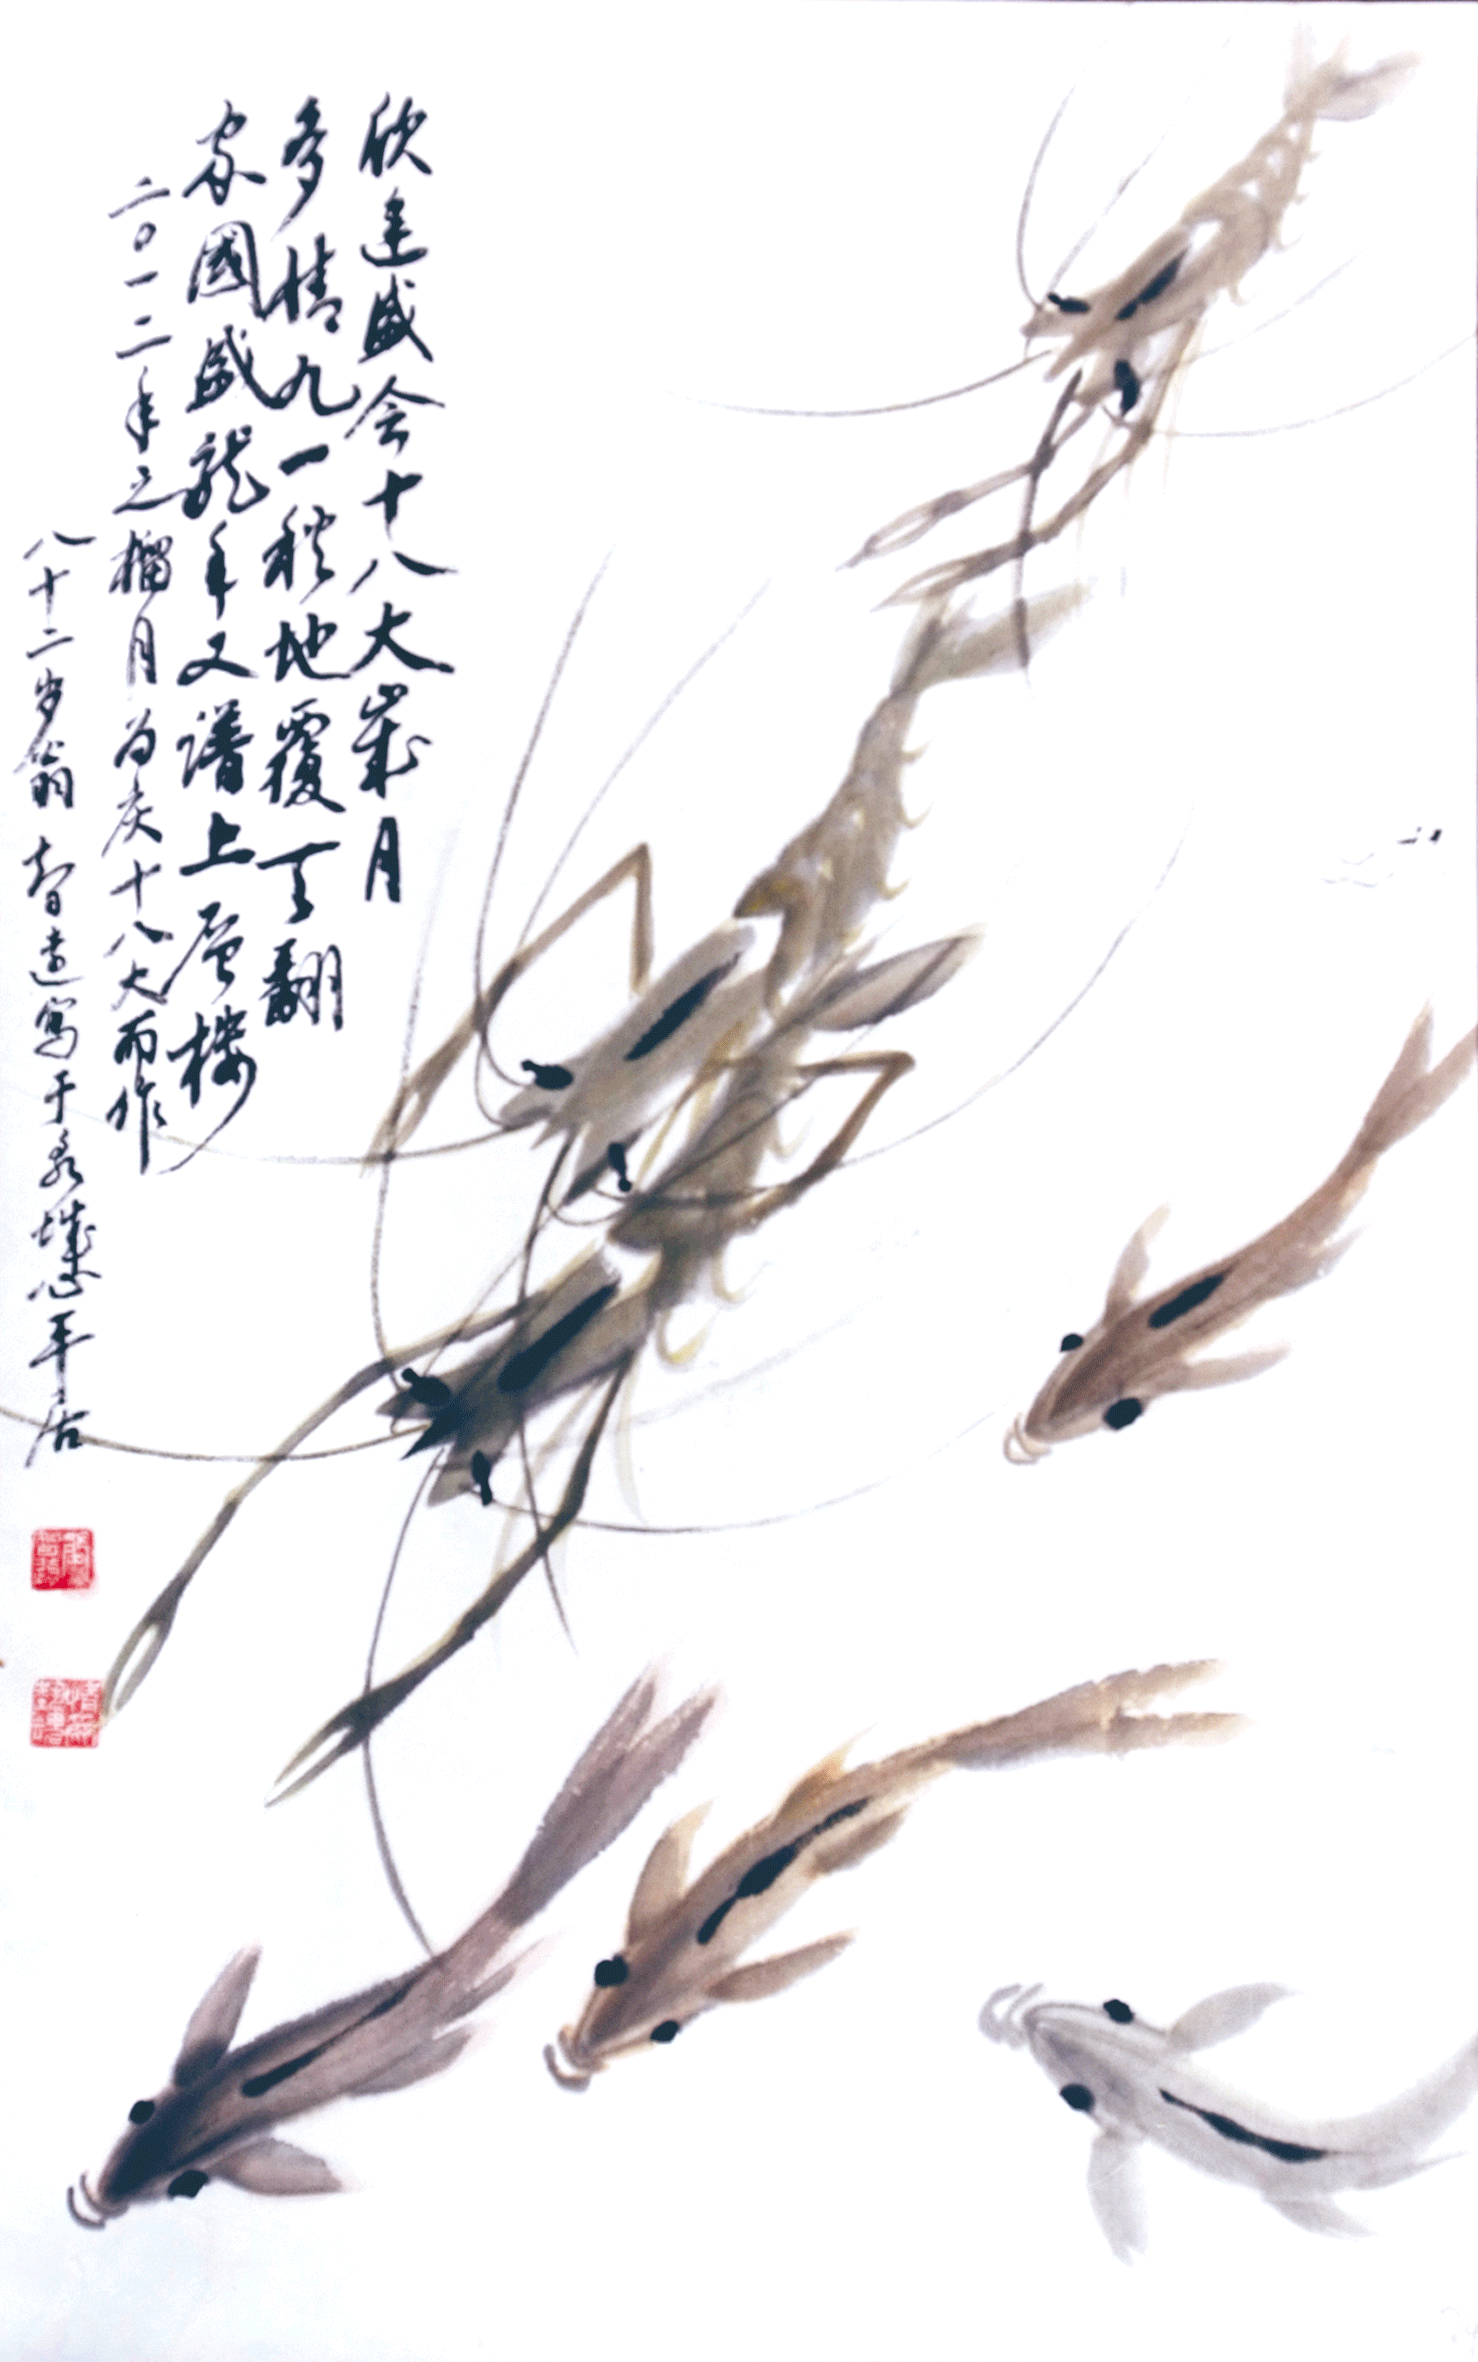 欣逢盛会十八大歲月
多情九一秩地覆天翻
家國盛龍年又谱上层楼
二〇一二年之榴月为庆十八大而作
八十二岁翁智遠写于泉城心平居